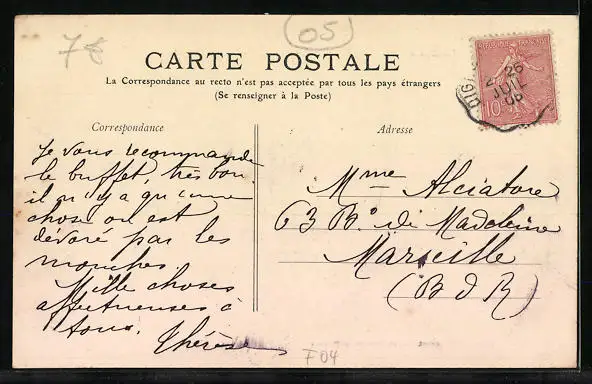 7€
05
CARTE POSTALE
La Correspondance au recto n'est pas acceptée par tous les pays étrangers
(Se renseigner à la Poste)
REPUBLIQUE FRANÇAISE
10c
26
JUIL
06
Correspondance
Adresse
Je vous recommande
le buffet, très bon.
il n'y a qu'une
chose on est
dévoré par les
mouches
Mille choses
affectueuses à
tous. Thérèse
Mme Alciatore
63 Bd de Madeleine
Marseille
(B d R)
F04